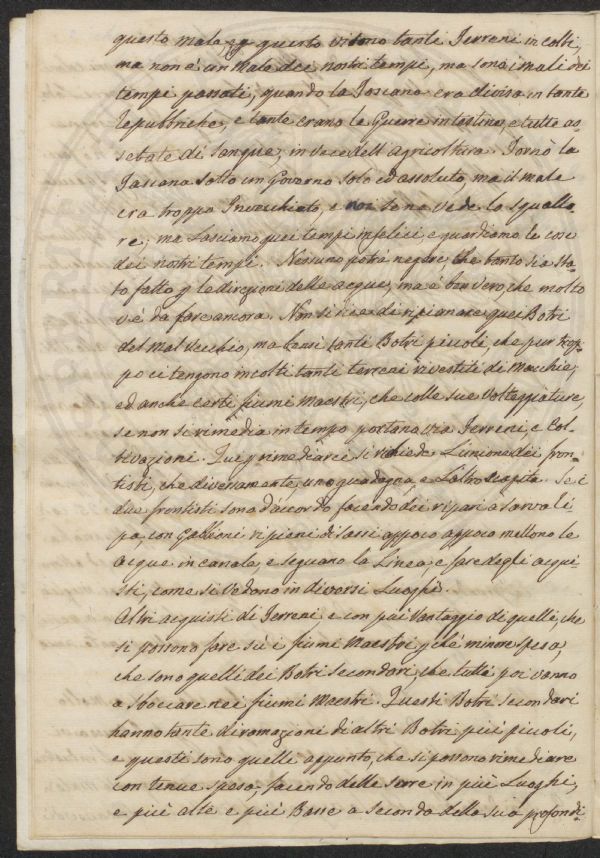 questo male, e p questo vi sono tanti Terreni incolti,
ma non è un Male dei nostri tempi, ma sono i mali dei
tempi passati, quando la Toscana era divisa in tante
Repubbriche, e tante erano le Guerre intestine, e tutte as-
setate di Sangue, in vece dell'Agricoltura. Tornò la
Toscana Sotto un Governo Solo ed assoluto, ma il male
era troppo Invecchiato, e noi se ne vede lo squallo
re; ma Lasciamo quei tempi infelici, e guardiamo le cose
dei nostri tempi. Nessuno potrà negare che tanto sia sta-
to fatto p le direzioni delle acque, ma è ben vero, che molto
v'è da fare ancora. Non si dice di ripianare quei Botri
del Mal Vecchio, ma bensì tanti Botri piccoli, che pur trop-
po ci tengono incolti tanti terreni rivestiti di Macchie,
ed anche certi fiumi Maestri, che colle sue Volteggiature,
se non si rimedia in tempo portano via Terreni, e Col-
tivazioni. Due p rimediarci si richiede L'unione dei fron-
tisti, che diversamente, uno guadagna, e L'altro scapita. Se i
due frontisti sono d'accordo facendo dei ripari a sarvo li
pa, con Gabbioni ripieni di Sassi appoco appoco mettono le
acque in canale, e seguano la Linea, e fare degli acqui
sti, come si Vedono in diversi Luoghi.
Altri acquisti di Terreni e con più Vantaggio di quelli, che
si possono fare sù i fiumi Maestri p chè minore spesa,
che sono quelli dei Botri secondari, che tutti poi vanno
a sboccare nei fiumi Maestri. Questi Botri secondari
hanno tante diramazioni di altri Botri più piccoli,
e questi sono quelli appunto, che si possono rimediare
con tenue spesa, facendo delle serre in più Luoghi,
e più alte e più Basse a seconda della sua profondi-